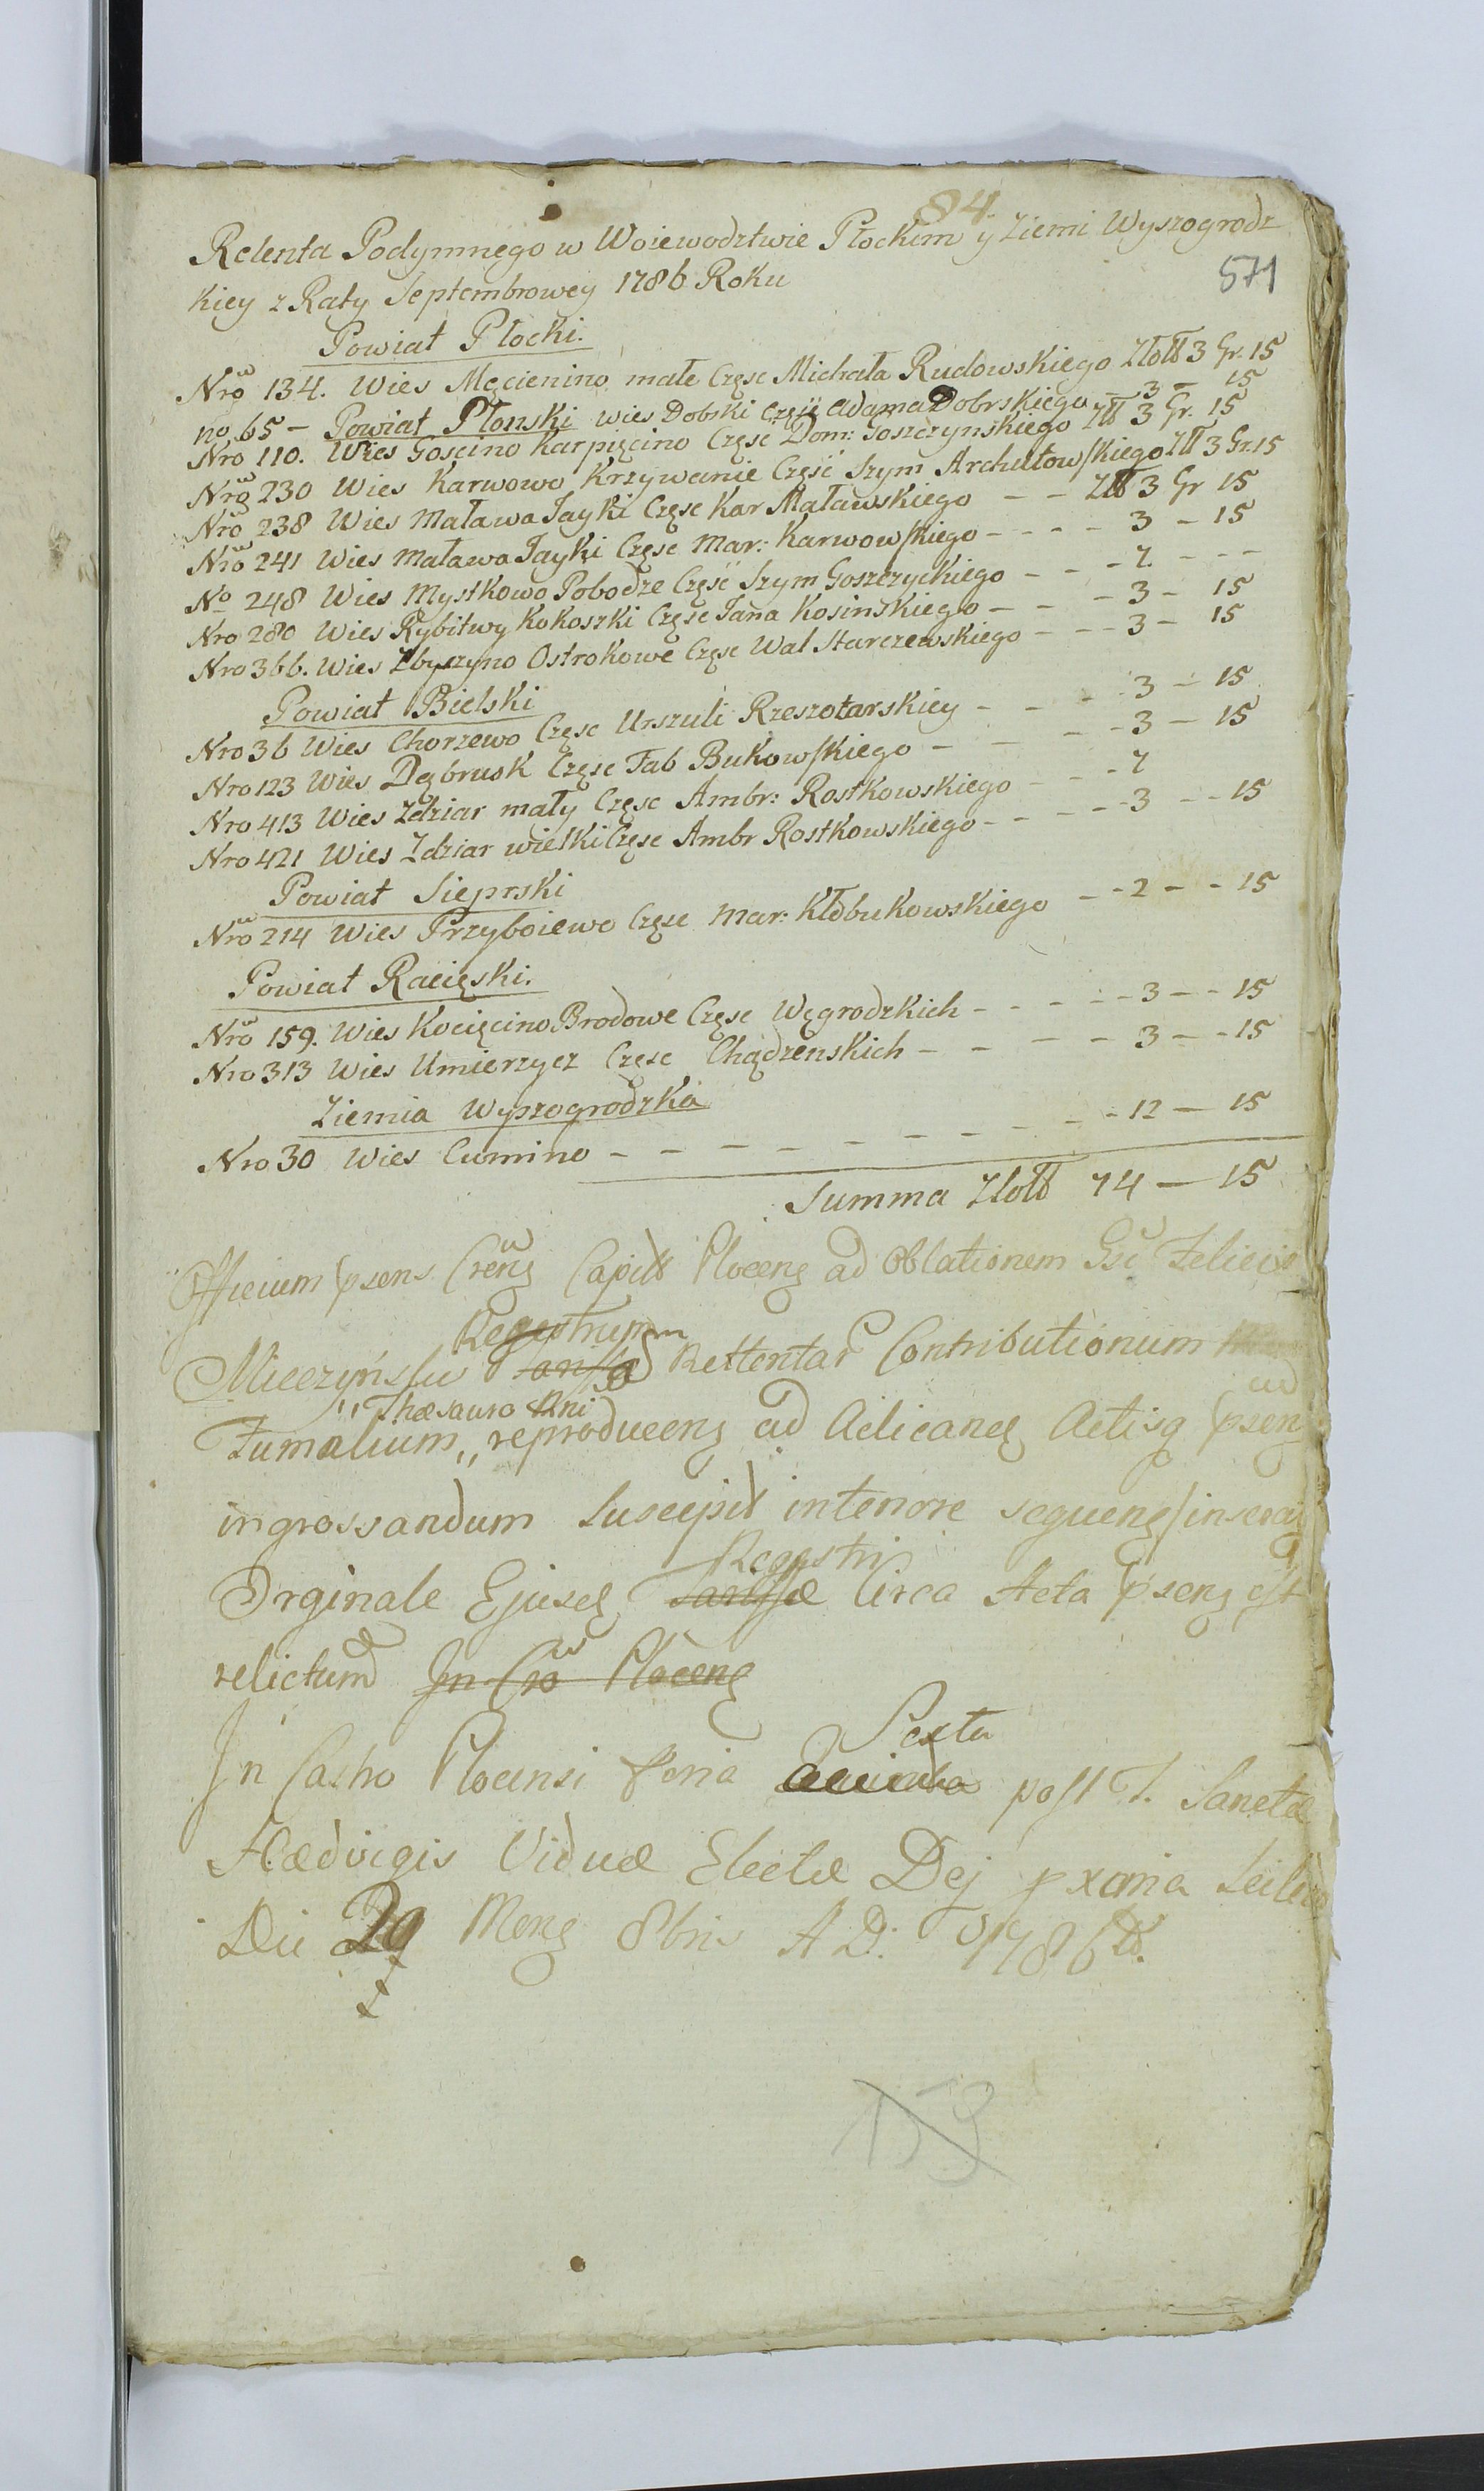 84.
Relenta Podymnego w Woiewodztwie Płockim y Ziemi Wyszogrodz
kiey z Raty Septembrowey 1786 Roku
571
Powiat Płocki.
Nro 134. Wies Męcienino małe Częsc Michała Rudowskiego Złott 3 Gr. 15
no 65 – Powiat Płonski wies Dobski Częsc Adama Dobrskiego 3 – 15
Nro 110. Wies Goscino Karpięcino Częsc Dom: Goszczynskiego Złł 3 Gr. 15
Nro 230 Wies Karwowo Krzywanie Częsc Szym Archutowskiego Złł 3 Gr. 15
Nro 238 Wies Matawa Jayki Częsc Kar Matawskiego – – Złł 3 Gr 15
Nro 241 Wies Matawa Jayki Częsc Mar: Karwowskiego – – – – 3 – 15
No 248 Wies Mystkowo Pobodze Częsc Szym Goszczyckiego – – – 7. – – –
Nro 280 Wies Rybitwy Kokoszki Częsc Jana Kosinskiego – – – 3 – 15
Nro 366. Wies Zbyszyno Ostrokowe Częsc Wal Starczewskiego – – – 3 – 15
Powiat Bielski
Nro 36 Wies Chorzewo Częsc Urszuli Rzeszotarskiey – – – – 3 – 15
Nro 123 Wies Dębrusk Częsc Fab Bukowskiego – – – – 3 – 15
Nro 413 Wies Zdziar mały Częsc Ambr: Rostkowskiego – – – 7
Nro 421 Wies Zdziar wielki Częsc Ambr Rostkowskiego – – – – – 3 – – 15
Powiat Sieprski
Nro 214 Wies Przyboiewo Częsc Mar: Kłobukowskiego – – 2 – – 15
Powiat Racięski.
Nro 159. Wies Kocięcino Brodowe Częsc Węgrodzkich – – – – – 3 – – 15
Nro 313 Wies Umierzycz Częsc Chądzenskich – – – – 3 – – 15
Ziemia Wyszogrodzka
Nro 30 Wies Cumino – – – – – – – – – – 12 – 15
Summa Złott 74 – 15
Officium psens Creng Capitt Plocens ad Oblationem
Regestrum
Mieczynski Taryffa Rettentar Contributionum
ad
" Thesauro Rni
Fumalium,, reproducens ad Acticand Actisq psens
ingrossandum Suscepit in tenore sequens
Regestri
Orginale Ejusd Taryffæ Circa Acta psens est
relictum In Cro Plocens
Sexta
In Castro Plocensi Feria Quinta post F. Sanctæ
Hædvigis Viduæ Electæ Dej pxima
Die 20 Mens 8bris A D. 1786to.
153